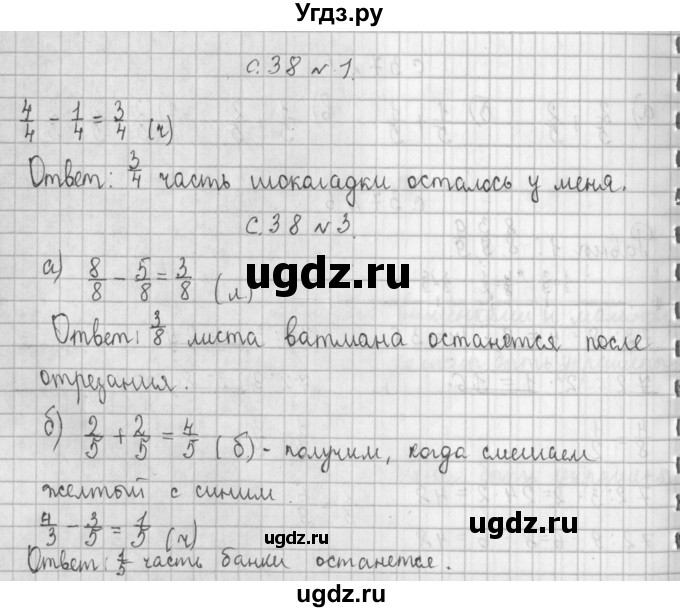 Угдз.ру
с.38 № 1.
4/4 - 1/4 = 3/4 (ч)
Ответ: 3/4 часть шокаладки осталось у меня.
с.38 № 3.
а) 8/8 - 5/8 = 3/8 (л)
ugdz.ru
ugdz.ru
Ответ: 3/8 листа ватмана останется после
отрезания.
б) 2/5 + 2/5 = 4/5 (б) - получим, когда смешаем
желтый с синим.
ugdz.ru
4/3 - 3/5 = 1/5 (ч)
ugdz.ru
Ответ: 1/5 часть банки останется.
ugdz.ru
ugdz.ru